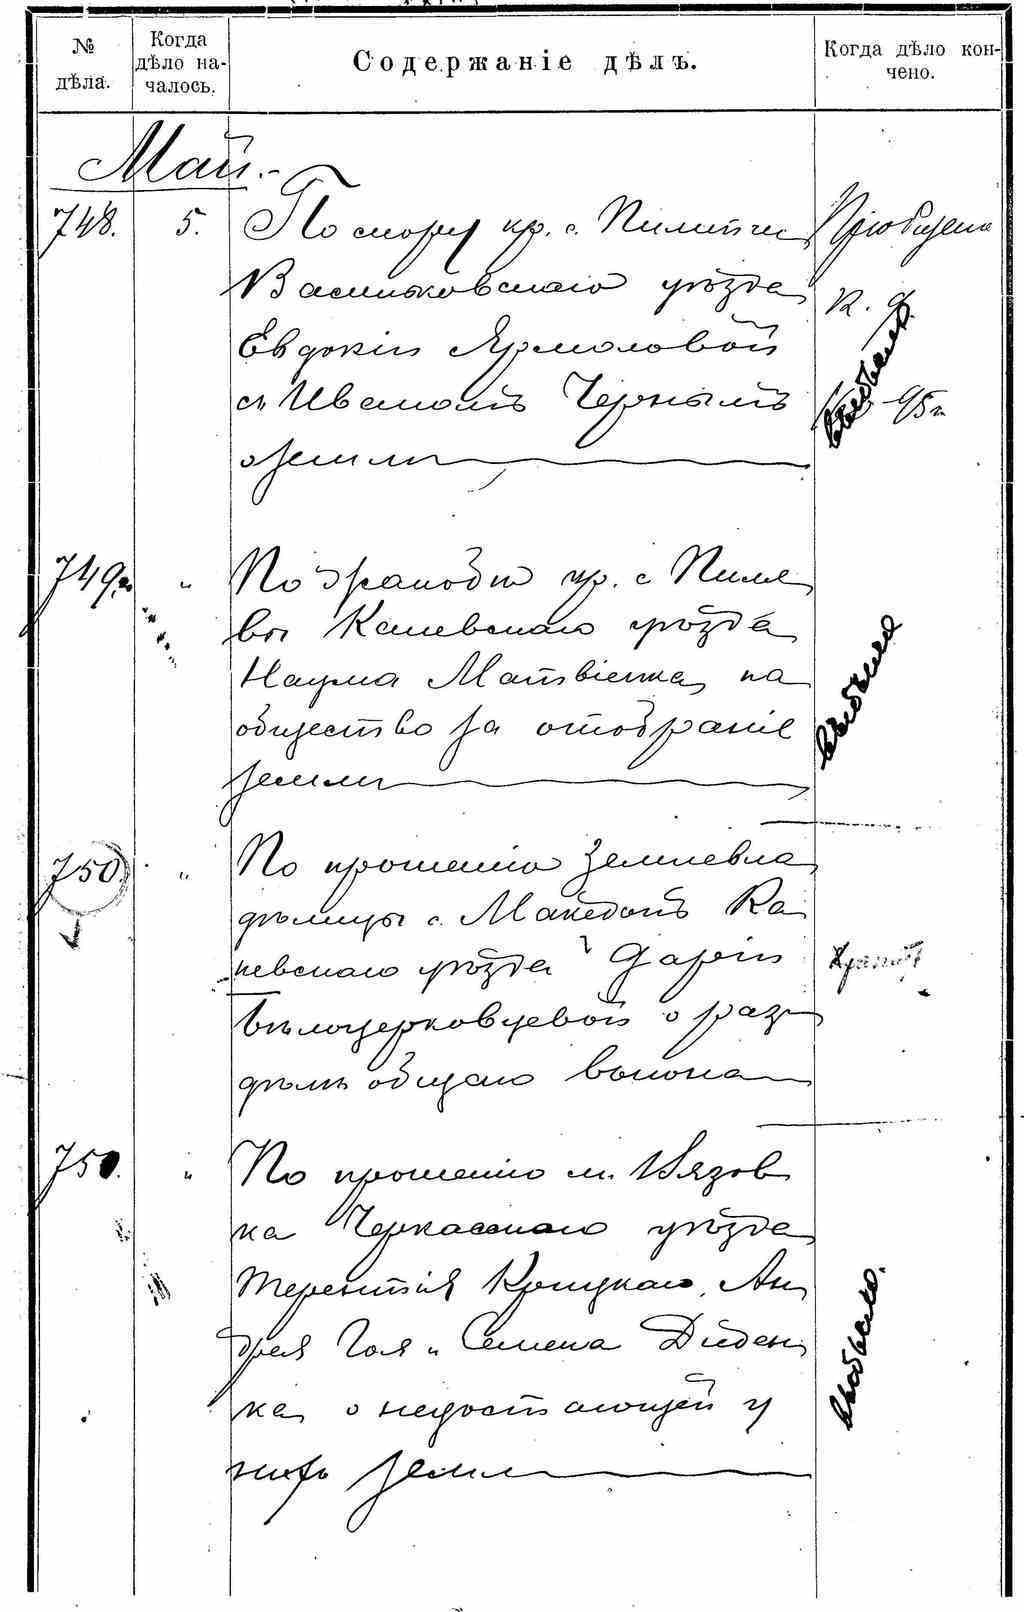 № дѣла.
Когда дѣло на-
чалось.
Содержаніе дѣлъ.
Когда дѣло кон-
чено.
Май.
748.
5.
По спору кр. с. Пилипчи
Васильковскаго уѣзда
Евдокіи Ярмоловой
съ Иваномъ Чернымъ
о земли
Пріобщено
к. д.
95 г.
выбыло
749
"
По жалобѣ кр. с Пиля
вы Каневскаго уѣзда
Наума Матвіенка на
общество за отобраніе
земли
выбыло
750
"
По прошенію землевла
дѣлицы с. Македонъ Ка
невскаго уѣзда Даріи
Бѣлоцерковцевой о раз
дѣлѣ общаго выгона
750.
"
По прошенію м. Вязов
ка Черкасскаго уѣзда
Терентія Крицкаго, Ан
дрея Гоя и Семена Диден
ка о недостающей у
нихъ земли
выбыло.